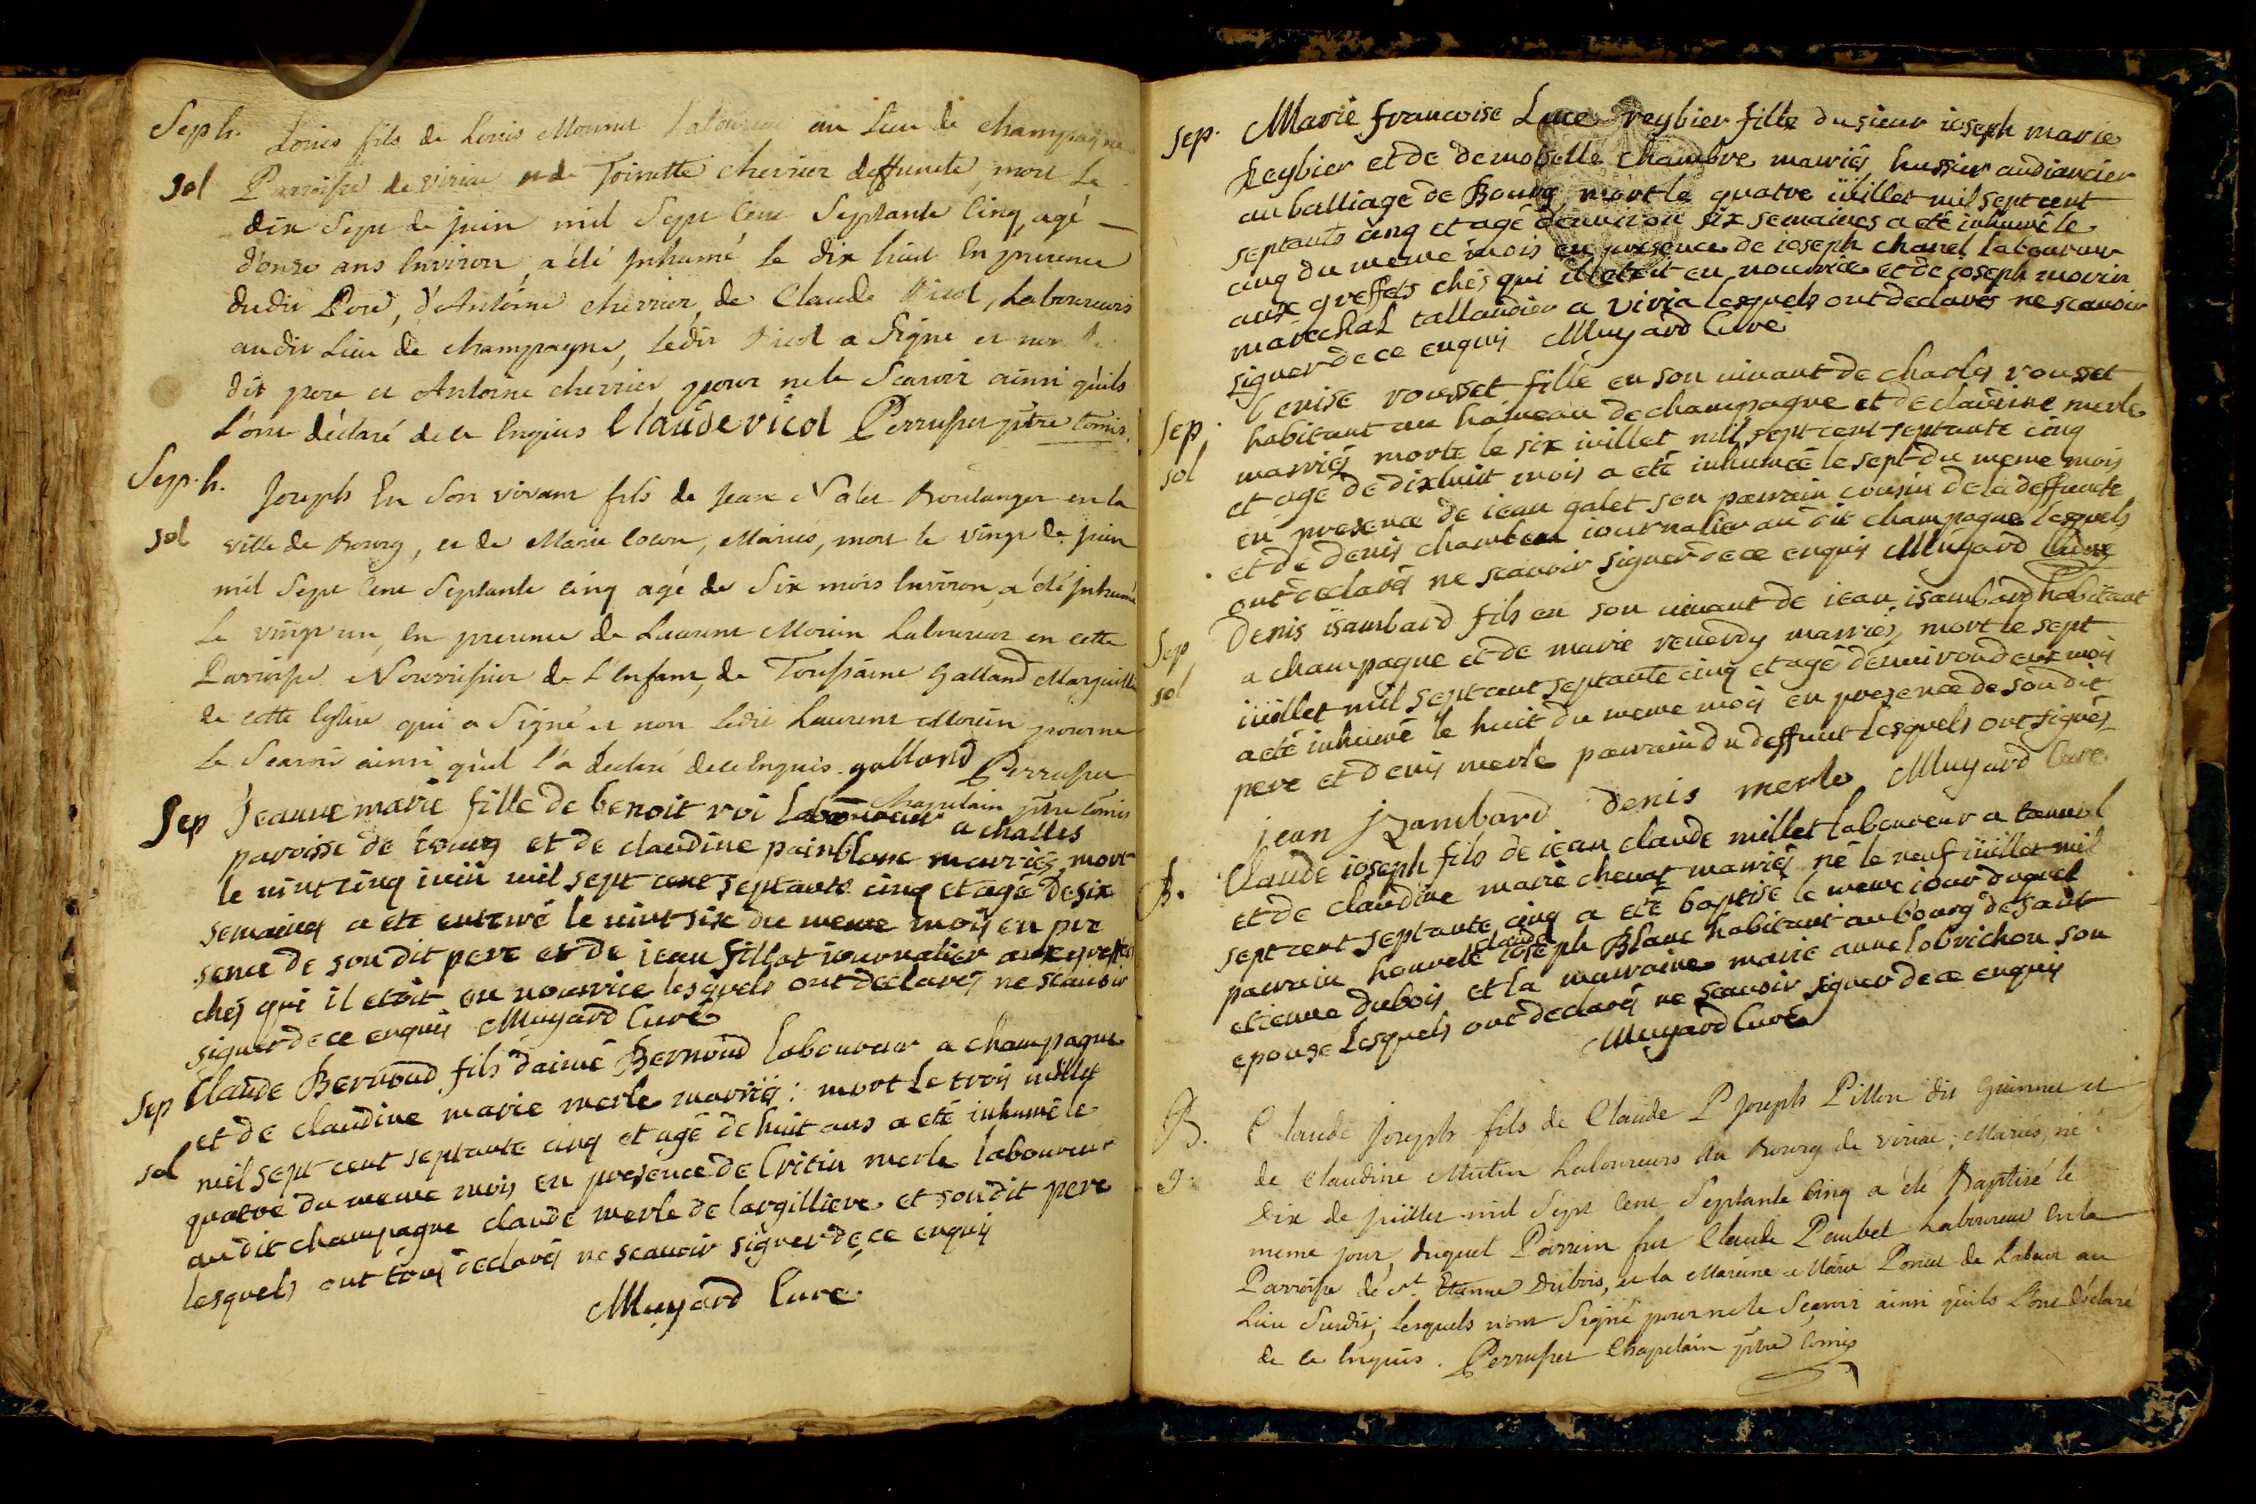 Seph. Louis fils de Louis Monnet Laboureur au Lieu de champagne
sol Parroisse de viriac et de Toinette chevrier deffuncte, mort Le
dix Sept de juin mil Sept Cent Septante Cinq, agé
d'onze ans Environ, a été Inhumé le dix huit En presence
dudit Pere, d'Antoine chevrier, de Claude Vicol, Laboureurs
audit Lieu de champagne, ledit Vicol a signe et non le
dit pere et Antoine chevrier pour ne le Scavoir ainsi qu'ils
L'ont déclaré de ce Enquis Claude vicol Perrusset ptre Comis.
Sep. h. Joseph En Son vivant fils de Jean Nalet Boulanger en la
sol ville de Bourg, et de Marie Cocon, Mariés, mort le vingt de juin
mil Sept Cent Septante Cinq agé de Six mois Environ, a été Inhumé
le vingt un, En presence de Laurent Morin Laboureur en cette
Parroisse Nourrissier de L'Enfant, de Toussaint Galland Marguillier
de cette Eglise qui a Signé et non Ledit Laurent Morin pour ne
le Scavoir ainsi qu'il l'a declaré de ce Enquis. galland Perrusset
Chapelain ptre Comis
Sep Jeanne marie fille de benoit roi Laboureur a challes
paroisse de bourg et de claudine painblanc mariiés, mort
le vint cinq iuin mil sept cent septante cinq et agé de six
semaines a eté enterré le vint six du meme mois en pre
sence de son dit pere et de iean fillot iournalier aux greffets
chés qui il etoit en nourrice lesquels ont declarés ne scavoir
signer de ce enquis Muyard Curé
Sep Claude Bernoud fils d'aimé Bernoud laboureur a champagne
et de claudine marie merle mariiés: mort le trois iuillet
sol mil sept cent septante cinq et agé de huit ans a eté inhumé le
quatre du meme mois en presence de Critin merle laboureur
au dit champagne claude merle de largilliere et son dit pere
lesquels ont tous declarés ne scavoir signer de ce enquis
Muyard Curé.
sep. Marie francoise Luce reybier fille du sieur ioseph marie
Reybier et de demoiselle chambre mariiés hussier audiancier
au balliage de Bourg, mort le quatre iuillet mil sept cent
septante cinq et agé denviron six semaines a eté inhumé le
cinq du meme mois en presence de ioseph chanel laboureur
aux greffets chés qui il etoit en nourrice et de ioseph morin
marechal tallandier a viria lesquels ont declarés ne scavoir
signer de ce enquis Muyard Curé
sep. Denise rousset fille en son vivant de charles rousset
habitant au hameau de champagne et de claudine merle
sol mariiés morte le six iuillet mil sept cent septante cinq
et agé de dixhuit mois a eté inhumée le sept du meme mois
en presence de iean galet son parrain cousin de la deffuncte
et de denis chambeau iournalier au dit champagne lesquels
ont declarés ne scavoir signer de ce enquis Muyard Curé
Sep Denis isambard fils en son vivant de iean isambard habitant
a champagne et de marie reverdy mariiés, mort le sept
sol iuillet mil sept cent septante cinq et agé denviron deux mois
a eté inhumé le huit du meme mois en presence de son dit
pere et denis merle parrain du deffunt lesquels ont signés
jean Izambard denis merle Muyard Curé
B. Claude ioseph fils de iean claude millet laboureur a tanvol
et de claudine marie chenat mariiés né le neuf iuillet mil
sept cent septante cinq a eté baptisé le meme iour duquel
parrain honorete claude ioseph Blanc habitant au bourg de saint
etienne dubois et la marraine marie anne lobrichon son
epouse lesquels ont declarés ne scavoir signer de ce enquis
Muyard Curé
B. Claude Joseph fils de Claude P Joseph Pillon dit Guinnet et
g. de Claudine Mutin Laboureurs du Bourg de viriac, Mariés, né
Dix de juillet mil Sept Cent Septante Cinq a été Baptisé le
meme jour, duquel Parrein fut Claude Paubel Laboureur En la
Parroisse de St. Etienne Dubois, et la Mareine Marie Poncet de Labour au
Lieu Susdit; Lesquels n'ont Signé pour ne le Sçavoir ainsi qu'ils L'ont déclaré
de ce Enquis. Perrusset Chapelain ptre Comis